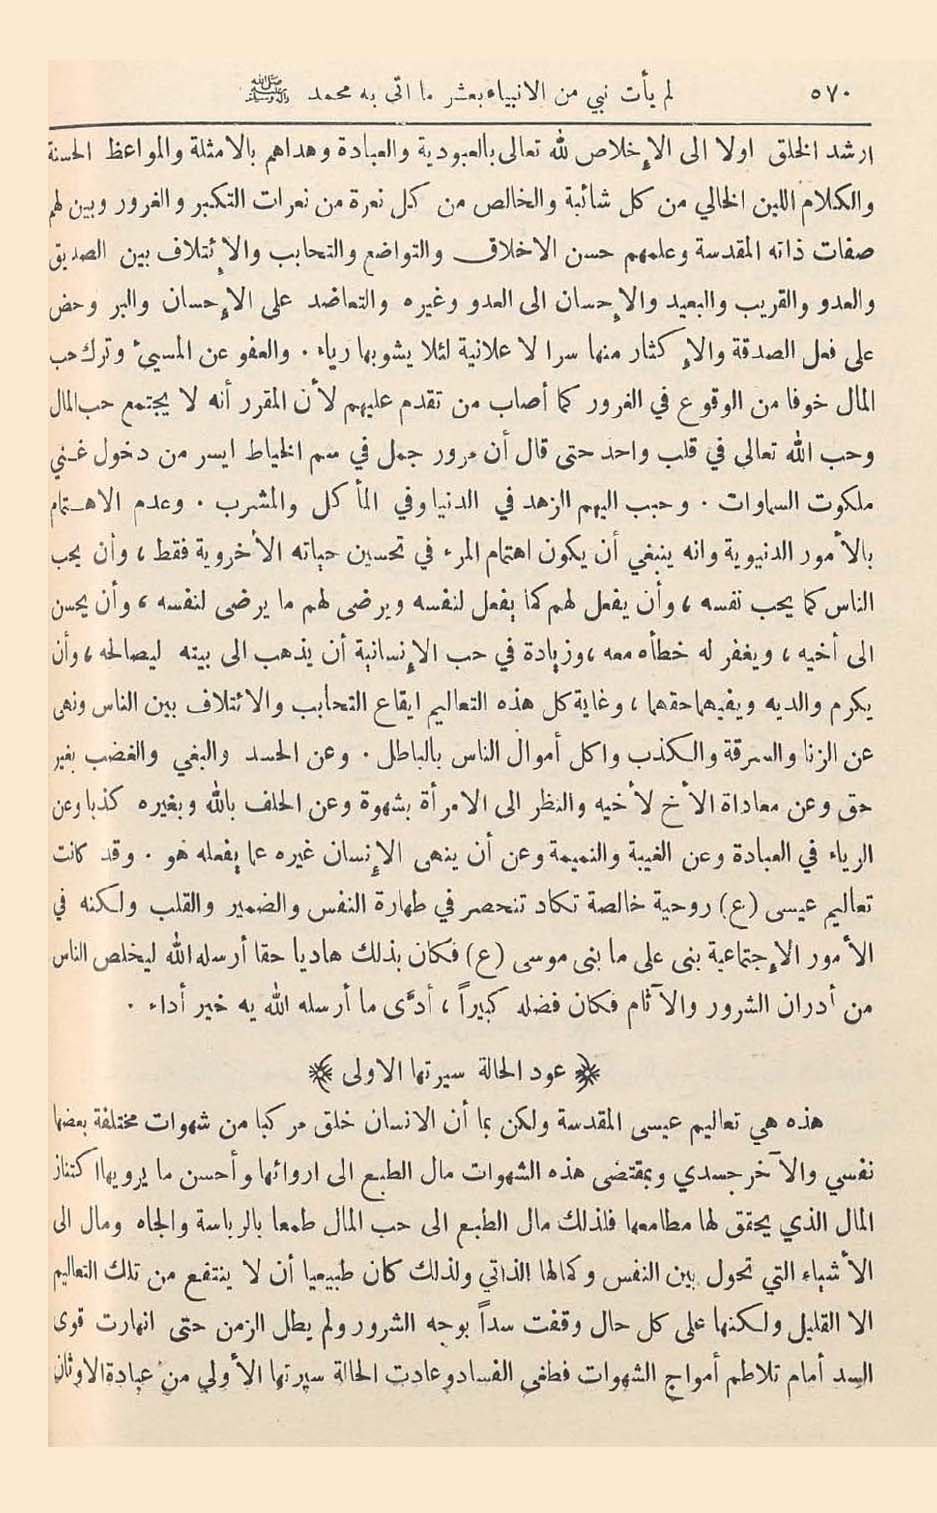 ٥٧٠ لم يأت نبي من الانبياء بعشر ما اتى به محمد ﷺ
ارشد الخلق اولا الى الإخلاص لله تعالى بالعبودية والعبادة وهداهم بالامثلة والمواعظ الحسنة
والكلام اللين الخالي من كل شائبة والخالص من كل نعرة من نعرات التكبر والغرور وبين لهم
صفات ذاته المقدسة وعلمهم حسن الاخلاق والتواضع والتحابب والإئتلاف بين الصديق
والعدو والقريب والبعيد والإحسان الى العدو وغيره والتعاضد على الإحسان والبر وحض
على فعل الصدقة والإكثار منها سرا لا علانية لئلا يشوبها رياء ٠ والعفو عن المسيئ وترك حب
المال خوفا من الوقوع في الغرور كما أصاب من تقدم عليهم لأن المقرر أنه لا يجتمع حب المال
وحب الله تعالى في قلب واحد حتى قال أن مرور جمل في سم الخياط ايسر من دخول غني
ملكوت السماوات ٠ وحبب اليهم الزهد في الدنيا وفي المأكل والمشرب ٠ وعدم الاهتمام
بالأمور الدنيوية وانه ينبغي أن يكون اهتمام المرء في تحسين حياته الأخروية فقط ، وأن يحب
الناس كما يحب نفسه ، وأن يفعل لهم كما يفعل لنفسه ويرضى لهم ما يرضى لنفسه ، وأن يحسن
الى أخيه ، ويغفر له خطأه معه ، وزيادة في حب الإنسانية أن يذهب الى بيته ليصالحه ، وأن
يكرم والديه ويفيهما حقهما ، وغاية كل هذه التعاليم ايقاع التحابب والائتلاف بين الناس ونهى
عن الزنا والسرقة والكذب واكل أموال الناس بالباطل ٠ وعن الحسد والبغي والغضب بغير
حق وعن معاداة الأخ لأخيه والنظر الى الامرأة بشهوة وعن الحلف بالله وبغيره كذبا وعن
الرياء في العبادة وعن الغيبة والنميمة وعن أن ينهى الإنسان غيره عما يفعله هو ٠ وقد كانت
تعاليم عيسى (ع) روحية خالصة تكاد تنحصر في طهارة النفس والضمير والقلب ولكنه في
الأمور الإجتماعية بنى على ما بنى موسى (ع) فكان بذلك هاديا حقا أرسله الله ليخلص الناس
من أدران الشرور والآثام فكان فضله كبيراً ، أدَّى ما أرسله الله به خير أداء ٠
﴿ عود الحالة سيرتها الاولى ﴾
هذه هي تعاليم عيسى المقدسة ولكن بما أن الانسان خلق مركبا من شهوات مختلفة بعضها
نفسي والآخر جسدي وبمقتضى هذه الشهوات مال الطبع الى اروائها وأحسن ما يرويها اكتناز
المال الذي يحقق لها مطامعها فلذلك مال الطبع الى حب المال طمعا بالرياسة والجاه ومال الى
الأشياء التي تحول بين النفس وكمالها الذاتي ولذلك كان طبيعيا أن لا ينتفع من تلك التعاليم
الا القليل ولكنها على كل حال وقفت سداً بوجه الشرور ولم يطل الزمن حتى انهارت قوى
السد أمام تلاطم أمواج الشهوات فطغى الفساد وعادت الحالة سيرتها الأولي من عبادة الاوثان